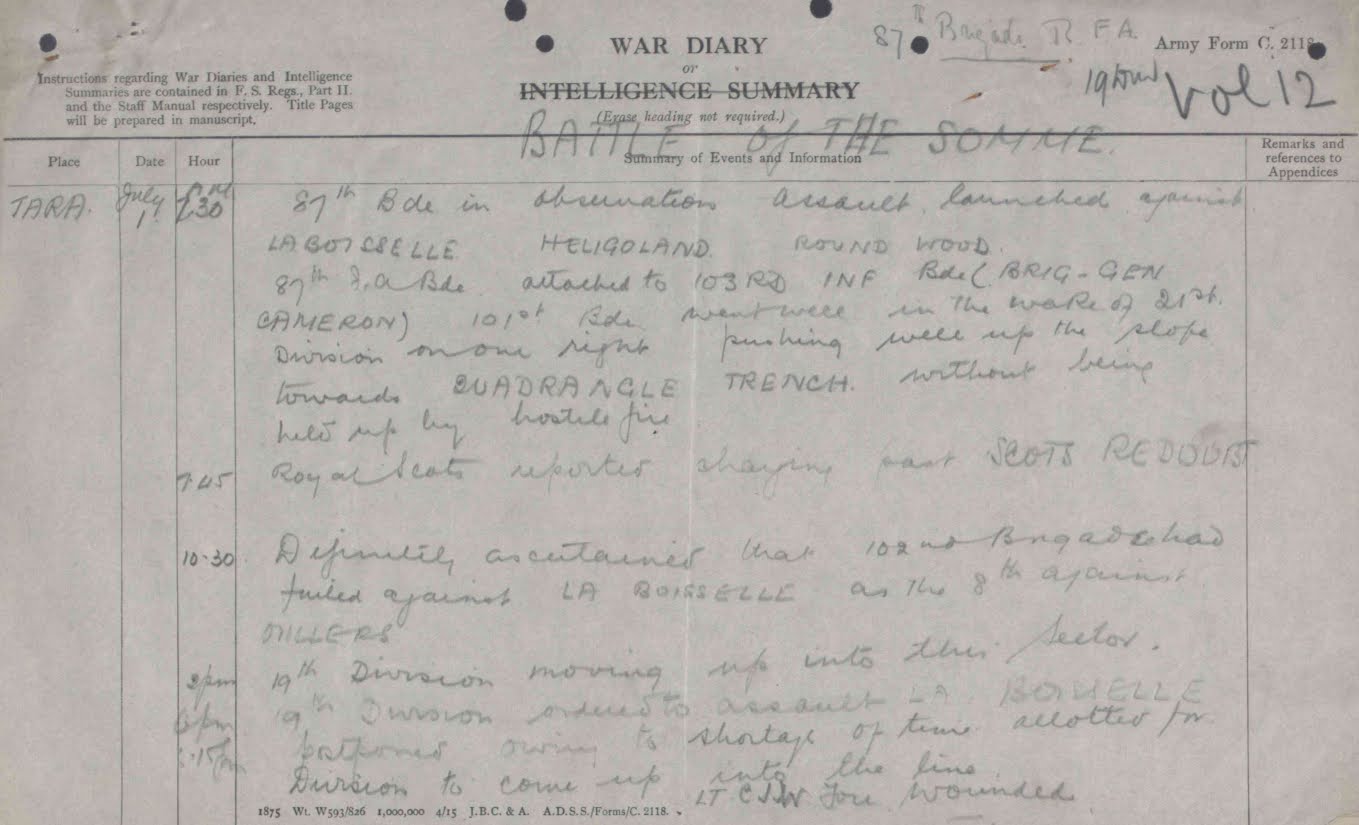 WAR DIARY
or
INTELLIGENCE SUMMARY
(Erase heading not required.)
87th Brigade R.F.A.
Army Form C. 2118.
Vol 12
Instructions regarding War Diaries and Intelligence
Summaries are contained in F. S. Regs., Part II.
and the Staff Manual respectively. Title Pages
will be prepared in manuscript.
BATTLE of THE SOMME.
Place Date Hour Summary of Events and Information Remarks and
references to
Appendices
TARA. July 1st 7.30 87th Bde in observation assault launched against
LABOISSELLE HELIGOLAND. ROUND WOOD.
87th F.A Bde attached to 103RD INF Bde (BRIG-GEN
CAMERON) 101st Bde went well in the wake of 21st.
Division on our right pushing well up the slope
towards QUADRANGLE TRENCH. without being
held up by hostile fire
7.45 Royal Scots reported charging past SCOTS REDOUBT
10.30 Definitely ascertained that 102nd Brigade had
failed against LA BOISSELLE as the 8th against
OVILLERS
2pm 19th Division moving up into this Sector.
6pm 19th Division ordered to assault LA BOISSELLE
postponed owing to shortage of time allotted for
Division to come up into the line.
LT wounded
1875 Wt. W593/826 1,000,000 4/15 J.B.C. & A. A.D.S.S./Forms/C. 2118.